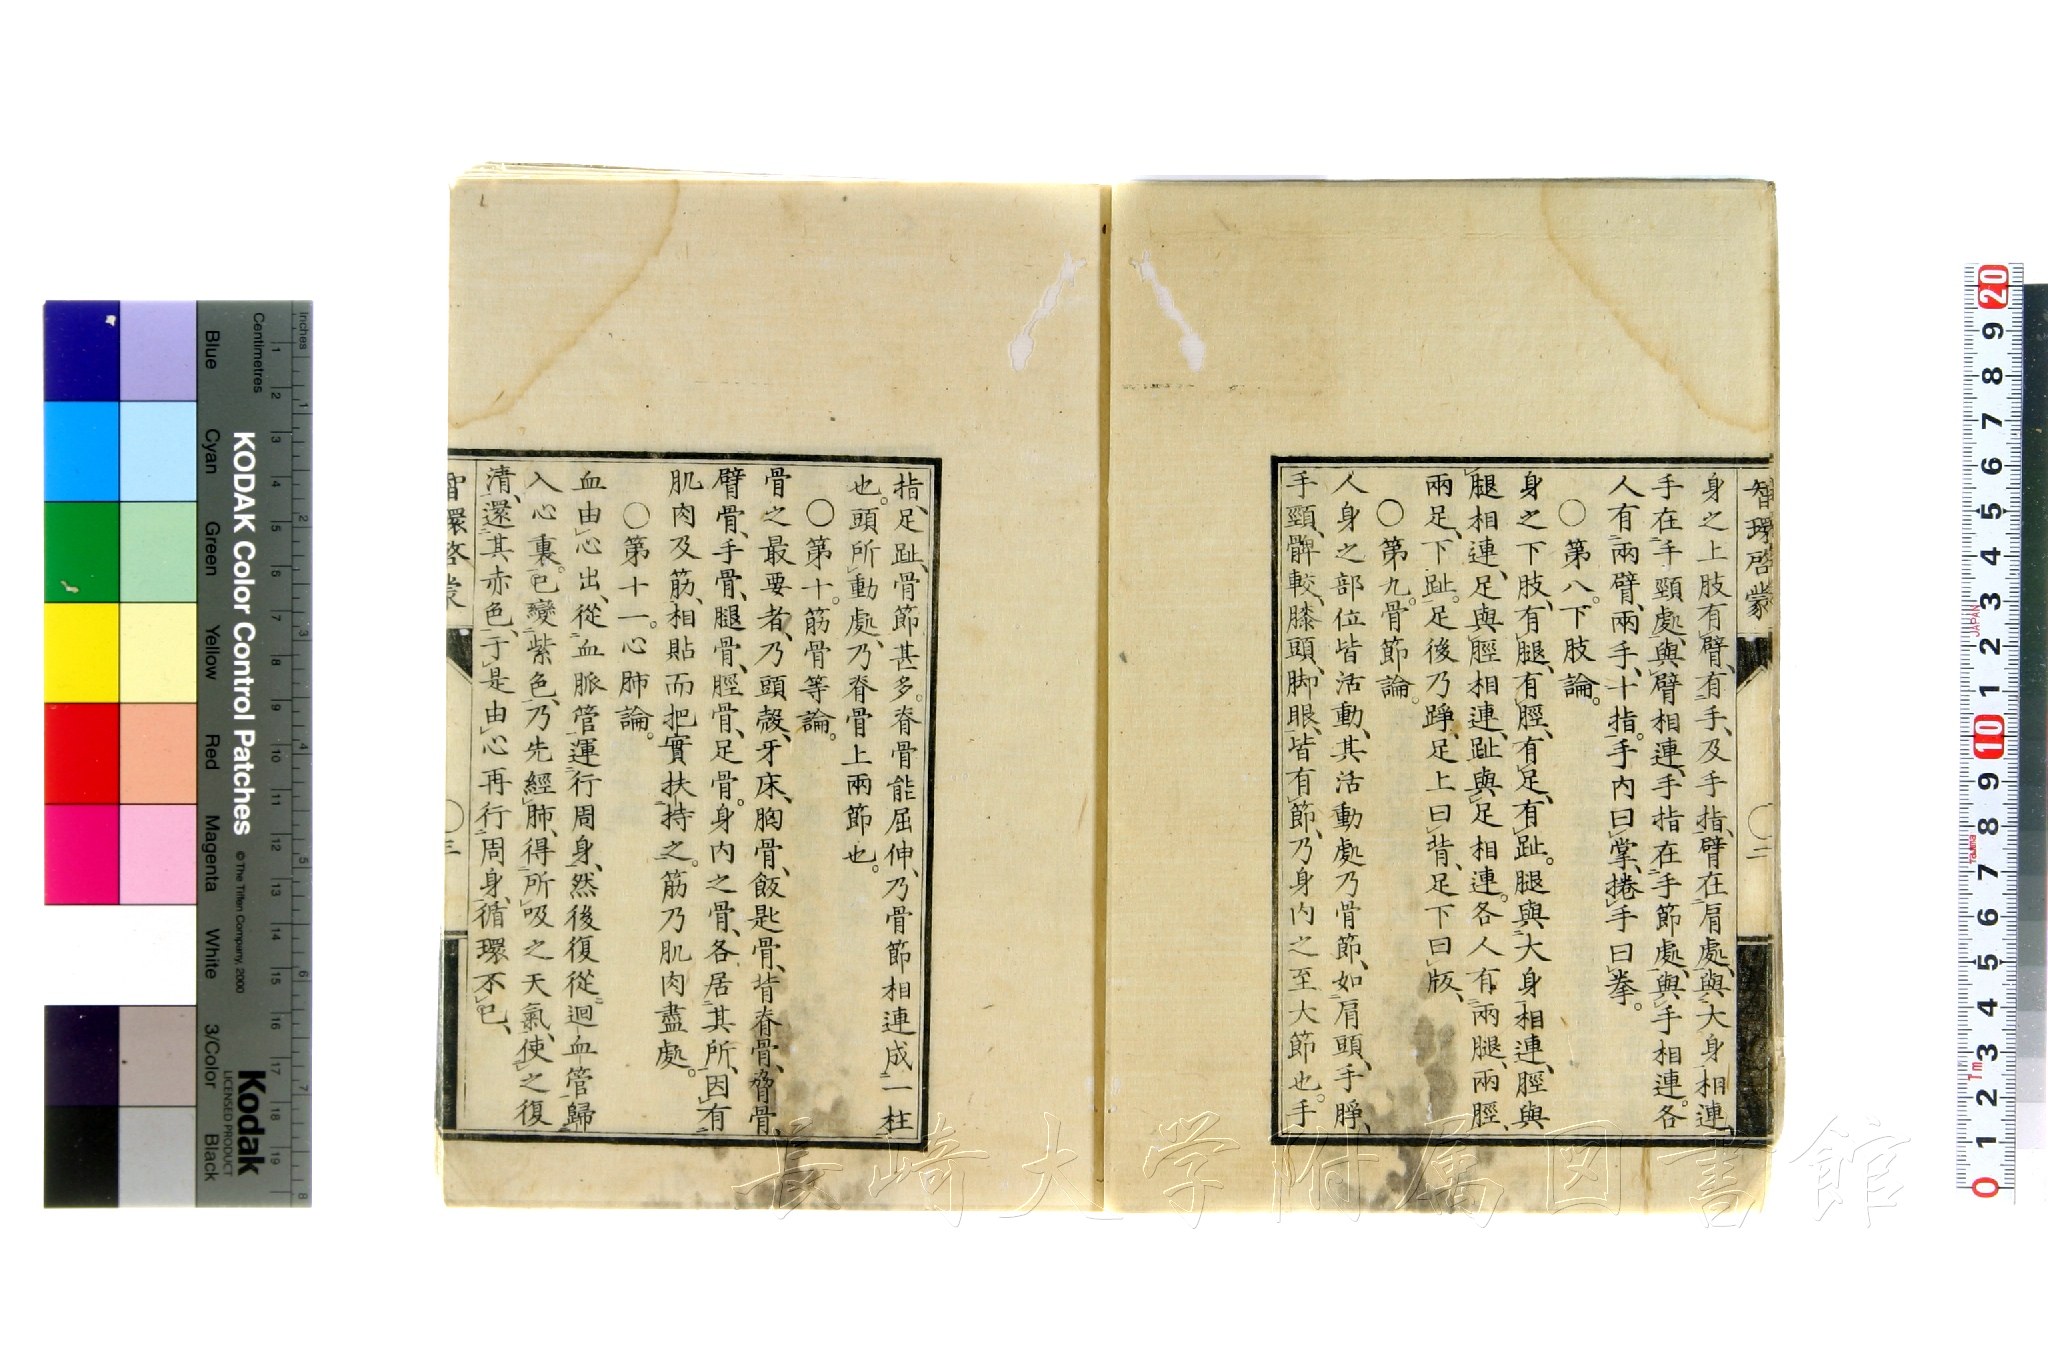 智環啓蒙
〇二
身之上肢有臂、有手、及手指、臂在肩處、與大身相連
手在手頸處、與臂相連、手指在手節處、與手相連。各
人有兩臂、兩手、十指。手內曰掌、捲手曰拳。
〇第八。下肢論。
身之下肢、有腿、有脛、有足、有趾。腿與大身相連、脛與
腿相連、足與脛相連、趾與足相連。各人有兩腿、兩脛、
兩足、下趾。足後乃踭、足上曰背、足下曰版、
〇第九。骨節論。
人身之部位皆活動、其活動處乃骨節、如肩頭、手睜、
手頸、髀較、膝頭、脚眼、皆有節、乃身內之至大節也。手
指、足趾、骨節甚多。脊骨能屈伸、乃骨節相連成一柱
也。頭所動處、乃脊骨上兩節也。
〇第十。筋骨等論。
骨之最要者、乃頭殼、牙床、胸骨、飯匙骨、背脊骨、脅骨、
臂骨、手骨、腿骨、脛骨、足骨。身內之骨、各居其所、因有
肌肉及筋、相貼而把實扶持之。筋乃肌肉盡處。
〇第十一。心肺論。
血由心出、從血脈管運行周身、然後復從迴血管歸
入心裏。已變紫色、乃先經肺、得所吸之天氣、使之復
清、還其赤色、于是由心再行周身、循環不已、
智環啓蒙
〇三
KODAK Color Control Patches
© The Tiffen Company, 2000
Kodak
LICENSED PRODUCT
Inches
Centimetres
Blue
Cyan
Green
Yellow
Red
Magenta
White
3/Color
Black
JAPAN
Tajima
長崎大学附属図書館